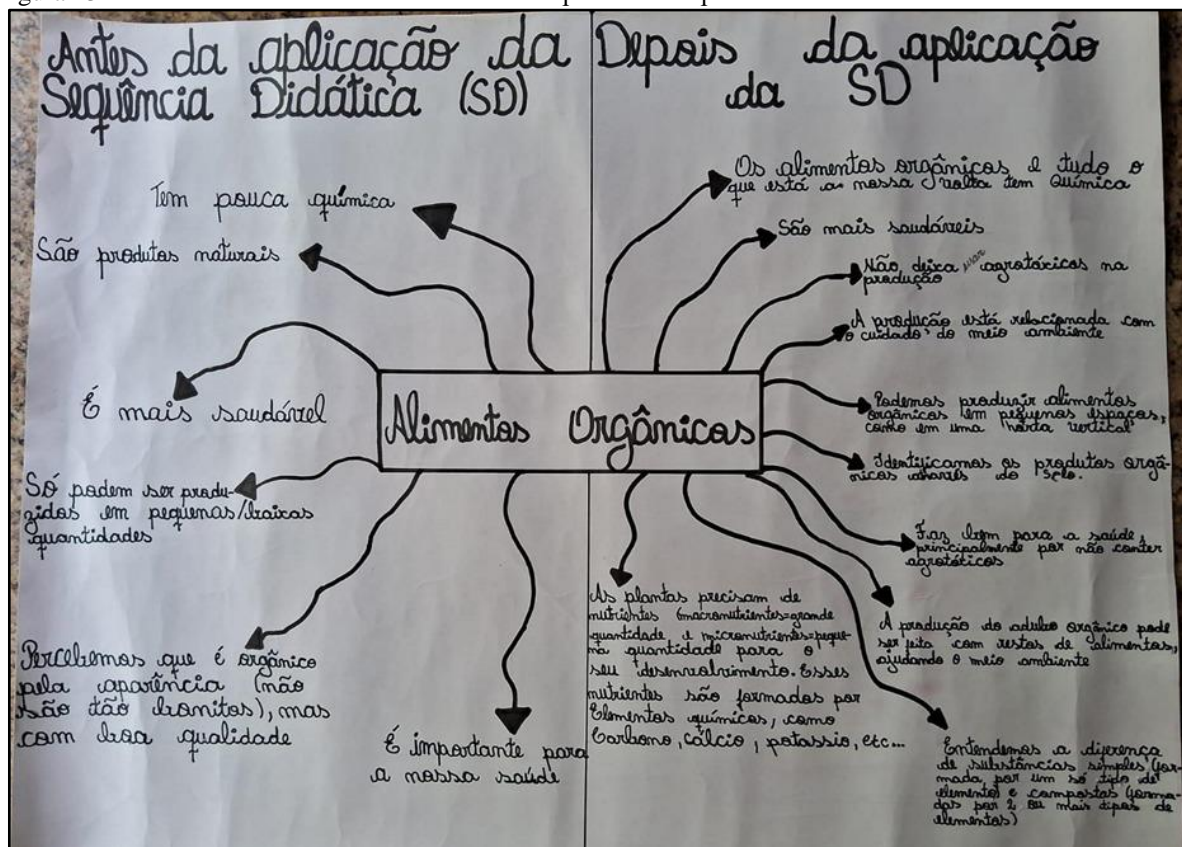 Antes da aplicação da
Sequência Didática (SD)
Tem pouca química
São produtos naturais
É mais saudável
Só podem ser produ-
zidos em pequenas/baixas
quantidades
Percebemos que é orgânico
pela aparência (não
são tão bonitos), mas
com boa qualidade
É importante para
a nossa saúde
Alimentos Orgânicos
Depois da aplicação
da SD
Os alimentos orgânicos e tudo o
que está a nossa volta tem Química
São mais saudáveis
Não deixa usar agrotóxicos na
produção
A produção está relacionada com
o cuidado do meio ambiente
Podemos produzir alimentos
orgânicos em pequenos espaços,
como em uma "horta vertical"
Identificamos os produtos orgâ-
nicos através do selo.
Faz bem para a saúde,
principalmente por não conter
agrotóxicos
A produção do adubo orgânico pode
ser feita com restos de alimentos,
ajudando o meio ambiente
As plantas precisam de
nutrientes (macronutrientes=grande
quantidade e micronutrientes=peque-
na quantidade para o
seu desenvolvimento. Esses
nutrientes são formados por
Elementos químicos, como
Carbono, cálcio, potassio, etc...
Entendemos a diferença
de substâncias simples (for-
mada por um só tipo de
elemento) e compostas (forma-
das por 2 ou mais tipos de
elementos)